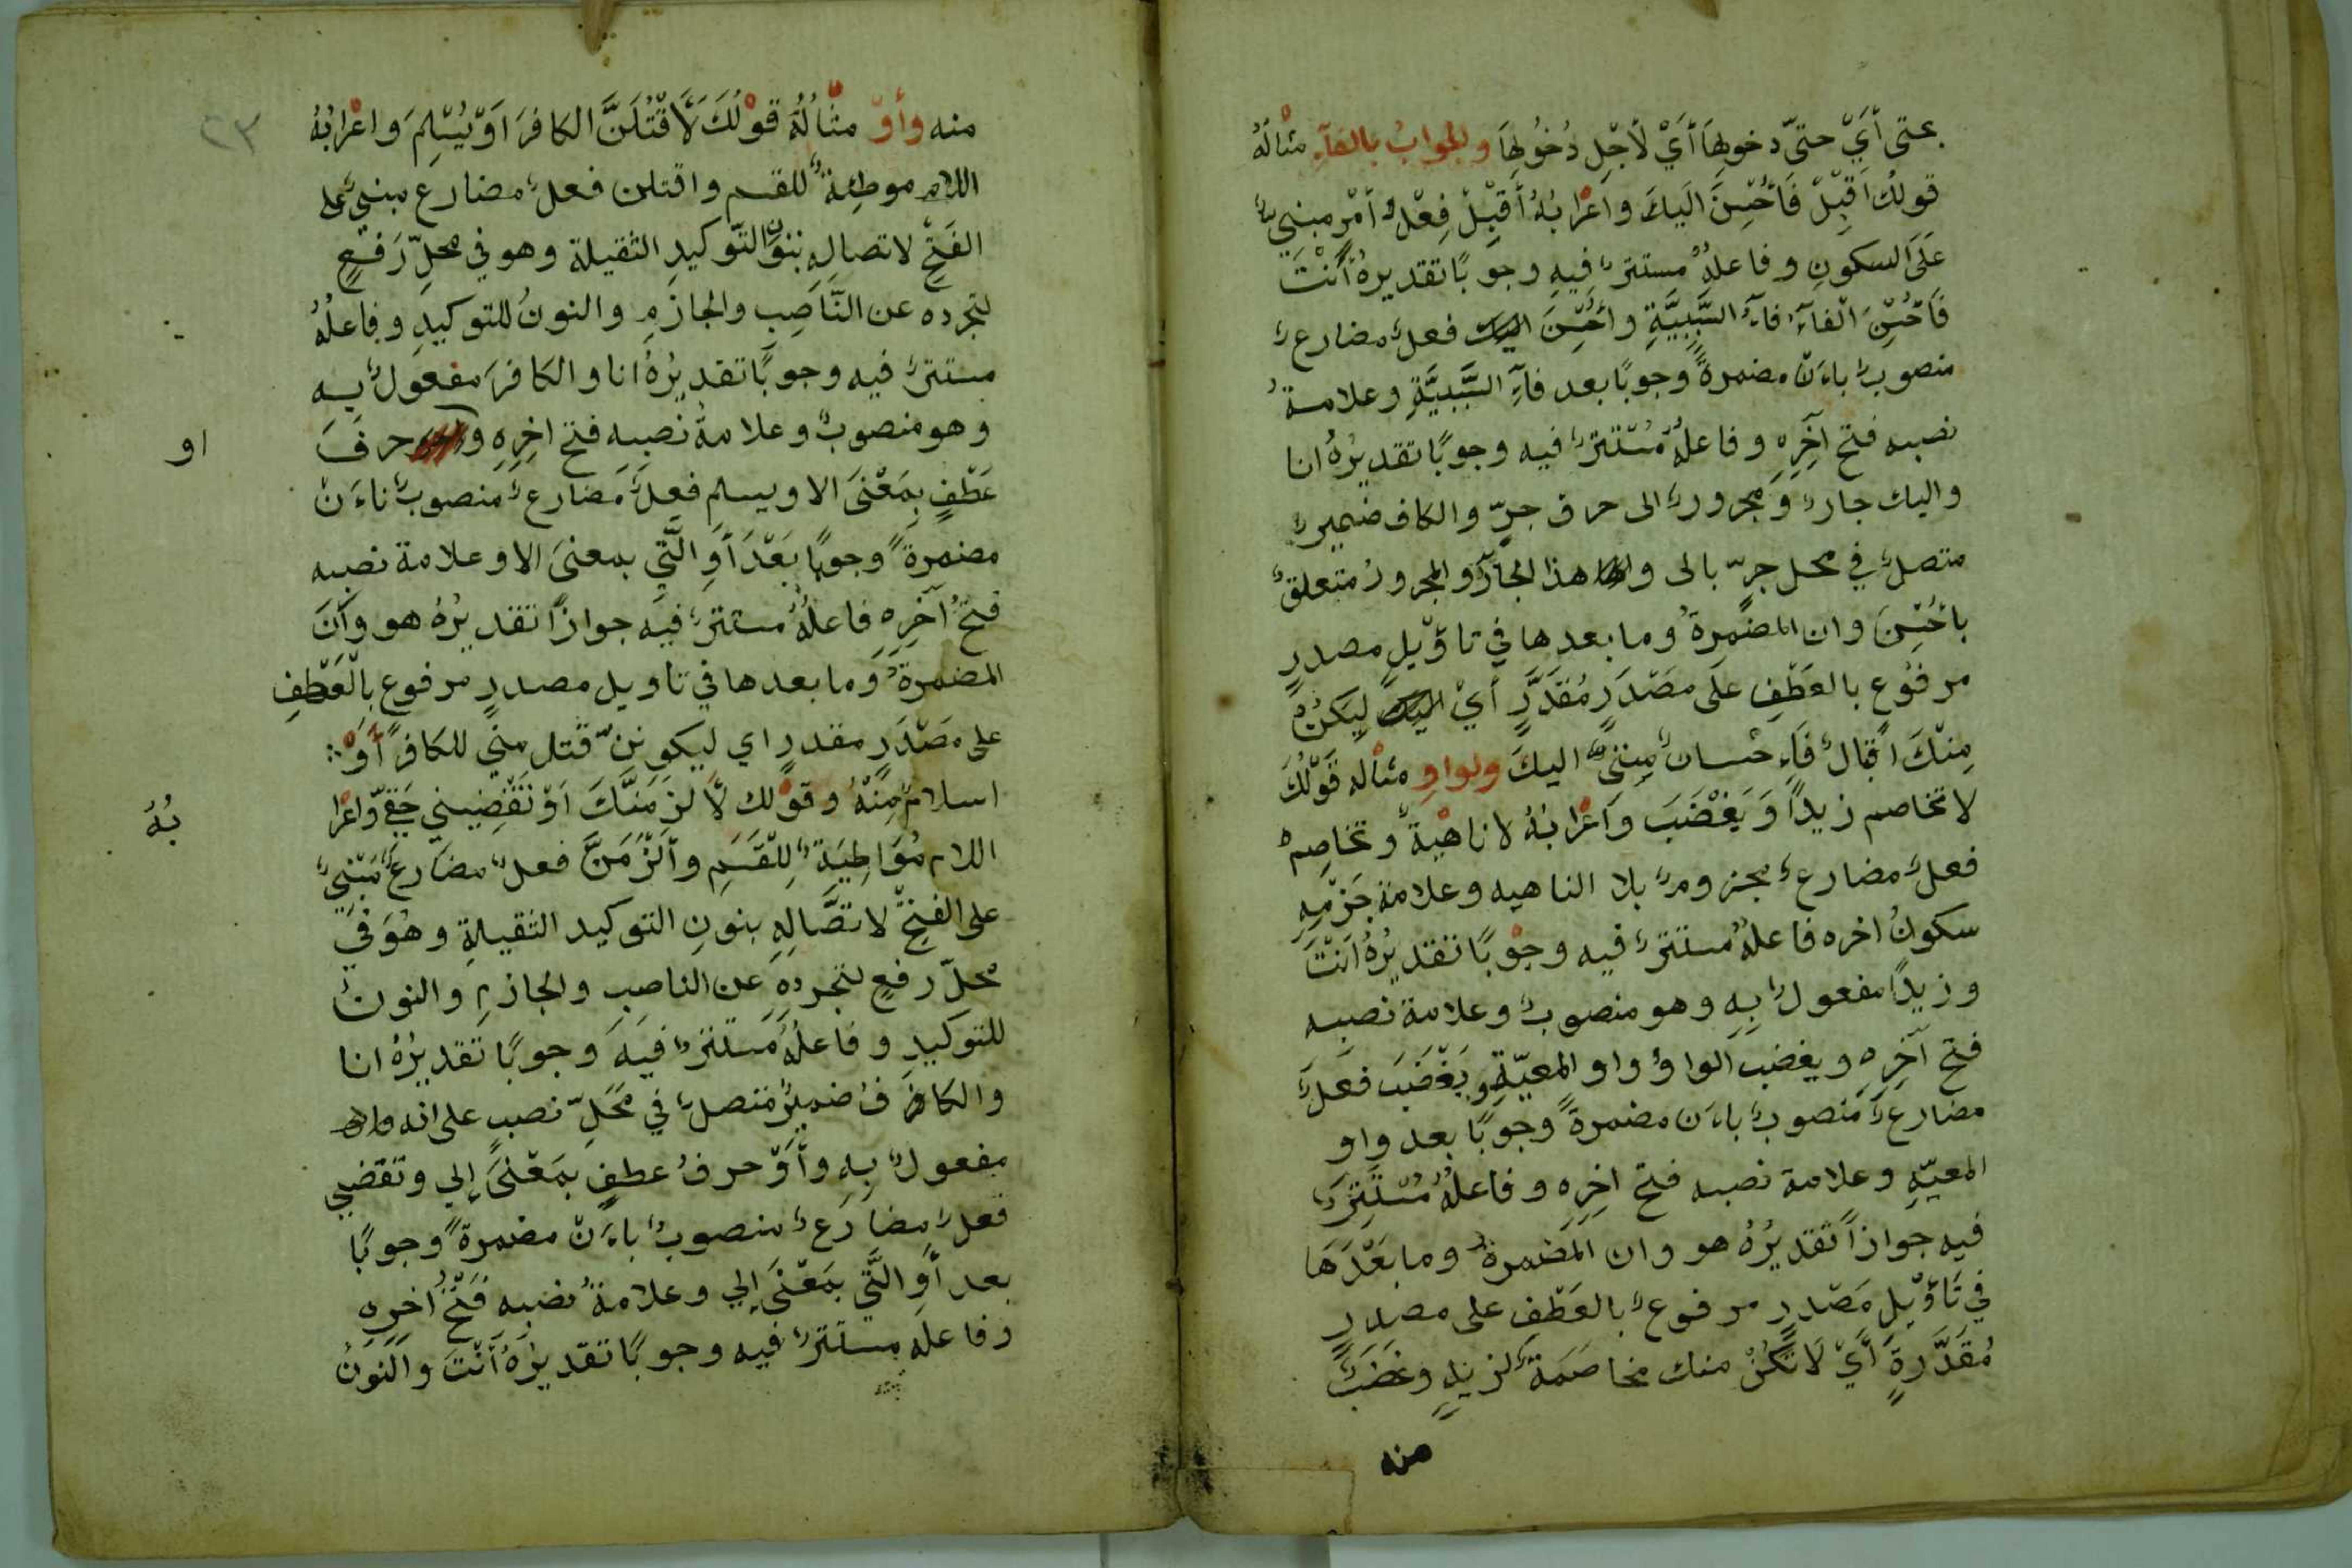 بحتى أَيْ حتىّ دخولِهَا أَيْ لأجْلِ دُخُولِهَا والجوابُ بالفآءِ مثالُهُ
قولكَ اَقْبِلْ فَأُحْسِنَ اليكَ واعْرابُهُ أَقْبِلْ فِعْلُ أمْرٍ مبنيٌّ
عَلَى السكونِ وفاعلهُ مستترٌ فيهِ وجوبًا تقديرهُ أَنْتَ
فَأُحْسِنَ الْفآءُ فآءُ السَّبَبِيَّةِ وأُحْسِنَ فعلٌ مضارعٌ
منصوبٌ باءَنْ مضمرةً وجوبًا بعد فآءِ السَّبَبيَّةِ وعلامةُ
نصبه فتح آخِرِهِ وفاعلهُ مُسْتترٌ فيه وجوبًا تقديرُهُ انا
واليك جارٌ ومجرورٌ الى حرف جرٍّ والكاف ضميرٌ
متصلٌ في محل جرّ بالى و هذا الجآرُ والمجرورُ متعلقٌ
بأُحْسِنَ وان المضمرةُ وما بعدها في تاؤيلِ مصدرٍ
مرفوعٍ بالعَطْفِ عَلَى مصْدَرٍ مُقَدَّرٍ أيْ لِيَكُنْ
مِنْكَ اقبالٌ فَاءِحْسانٌ مِنِّيْ اليكَ ولواوِ مثاله قَوْلُكَ
لا تخاصم زيدًا وَيَغْضَبَ واعْرابُهُ لا ناهيةٌ وتخاصِمْ
فعلٌ مضارعٌ مجزومٌ بلا الناهيه وعلامة جَزْمِهِ
سكونُ اخره فاعلهُ مستترٌ فيه وجوْبًا تقديرُهُ اَنْتَ
وزيدًا مفعولٌ بِهِ وهو منصوبٌ وعلامة نصبه
فتح آخِرِهِ ويغضب الواوُ واو المعيّةِ ويَغْضَبَ فعلٌ
مضارعٌ منصوبٌ باءَن مضمرةً وجوبًا بعد واو
المعيّهِ وعلامة نصبه فتح اخِرِهِ وفاعلُهُ مُسْتَتِرٌ
فيه جوازًا تقديرُهُ هو وان المَضمرةُ وما بَعْدَهَا
في تَاؤيْلِ مَصْدرٍ مرفوعٌ بالعَطْفِ على مصدرٍ
مُقَدَّرةٍ أَيْ لَا تَكُنْ منك مخاصَمَةٌ لزيدٍ وغضَبٌ
منه
٢٣
منه وأوْ مثْالُهُ قَوْلُكَ لَأَقْتُلَنَّ الكافرَ اَوْ يُسْلِمَ واعْرابُهُ
اللام موطِئةٌ للقسم واقتلن فعلٌ مضارع مبنيٌ على
الفَتْحِ لاتصالِهِ بنون التّوكيدِ الثقيلة وهو في محلِّ رَفعٍ
لتجرده عن النَّاصِبِ والجازمِ والنونُ للتوكيدِ وفاعلُهُ
مستترٌ فيه وجوبًا تقديرُهُ انا والكافرَ مفعولٌ بِهِ
وهو منصوبٌ وعلامةُ نصبِهِ فتح اخِرِهِ و حرفَ
او
عَطْفٍ بِمَعْنَى الا ويسلم فعلٌ مَضارعٌ منصوبٌ باءَنْ
مضمرةً وجوبًا بَعْدَ أوِ الَّتي بمعنَى الا وعلامة نصبه
فتحُ آخِرِهِ فاعلُهُ مستترٌ فيه جوازًا تقديرُهُ هو وأنَ
المضمرةُ وما بعدها في تاويل مصدرٍ مرفوع بالْعَطْفِ
على مصْدَرٍ مقدرٍ اي ليكوننّ قتل منّي للكافر أَوْ ؞
اسلامٌ مِنْهُ وقوْلك لَألزَمَنَّكَ اَوْ تَقْضِيني حَقّي واعْرا
بُهُ
اللام مُوَاطِيَةٌ لِلْقَسَمِ وأَلْزَمَنَّ فعلٌ مضارعٌ مَبْنيٌ
على الفتحِ لاتصَّالِهِ بنونِ التوكيد الثقيلةِ وهُوَ في
محلّ رفعٍ لتجردِهِ عن الناصبِ والجازمِ والنونُ
للتوكيدِ وفاعلُهُ مستترٌ فيه وجوبًا تقديرُهُ انا
والكاف ضميرٌ متصلٌ في مَحَلّ نصبٍ على انه
مفعولٌ بِهِ وأَوْ حرفُ عطفٍ بمَعْنَى إلي وتقضي
فعلٌ مضارعٌ منصوبٌ باءَنْ مضمرةً وجوبًا
بعد أَوِ الَّتي بمَعْنَى إلي وعلامةُ نصبه فَتْحُ اخرِهِ
وفاعله مستترٌ فيه وجوبًا تقديرُهُ أَنْتَ والنونُ